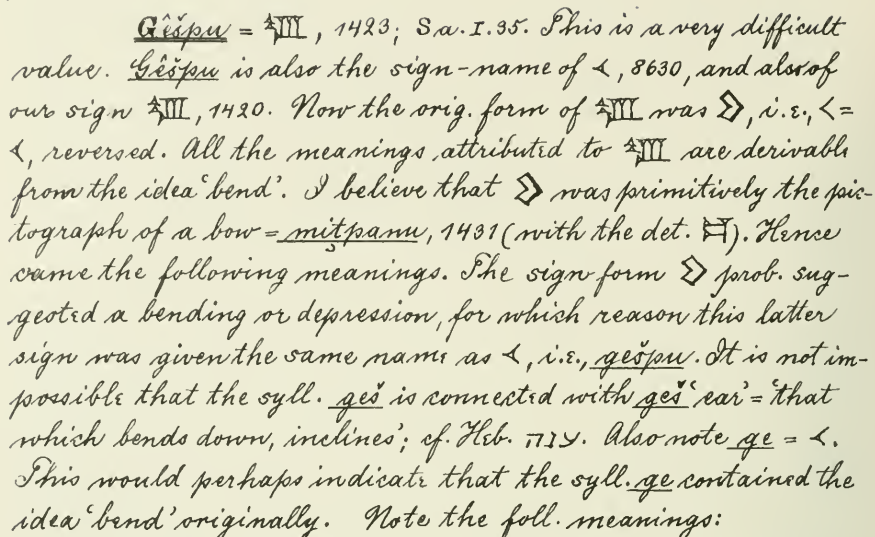 Gêšpu = , 1423; Sa.I.35. This is a very difficult
value. Gêšpu is also the sign-name of 𒌋, 8630, and also of
our sign , 1420. Now the orig. form of was , i.e., < =
𒌋, reversed. All the meanings attributed to are derivable
from the idea ‘bend’. I believe that was primitively the pic-
tograph of a bow = miṭpanu, 1431 (with the det. ). Hence
came the following meanings. The sign form prob. sug-
gested a bending or depression, for which reason this latter
sign was given the same name as 𒌋, i.e., gešpu. It is not im-
possible that the syll. geš is connected with geš ‘ear’ = ‘that
which bends down, inclines’; cf. Heb. ענה. Also note ge = 𒌋.
This would perhaps indicate that the syll. ge contained the
idea ‘bend’ originally. Note the foll. meanings: